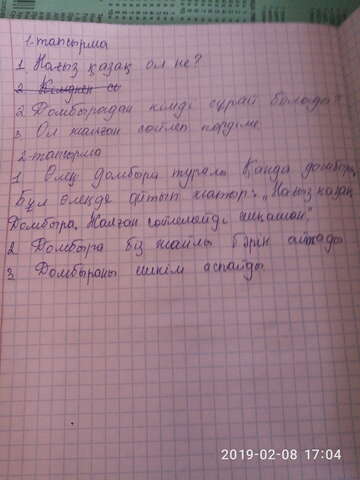 1-тапсырма
1. Нағыз қазақ ол не?
2. Кімднен сұ
2. Домбырадан кімді сұрай болады?
3. Ол жалған сөйлеп көрдіме
2-тапсырма
1 Өлең домбыра туралы Қанда домбыра,
Бұл өлеңде айтып жатыр: "Нағыз қазақ
Домбыра. Жалған сөйлемейді ешқашан"
2 Домбыра біз жайлы бәрін айтады
3 Домбыраны ешкім аспайды
2019-02-08 17:04